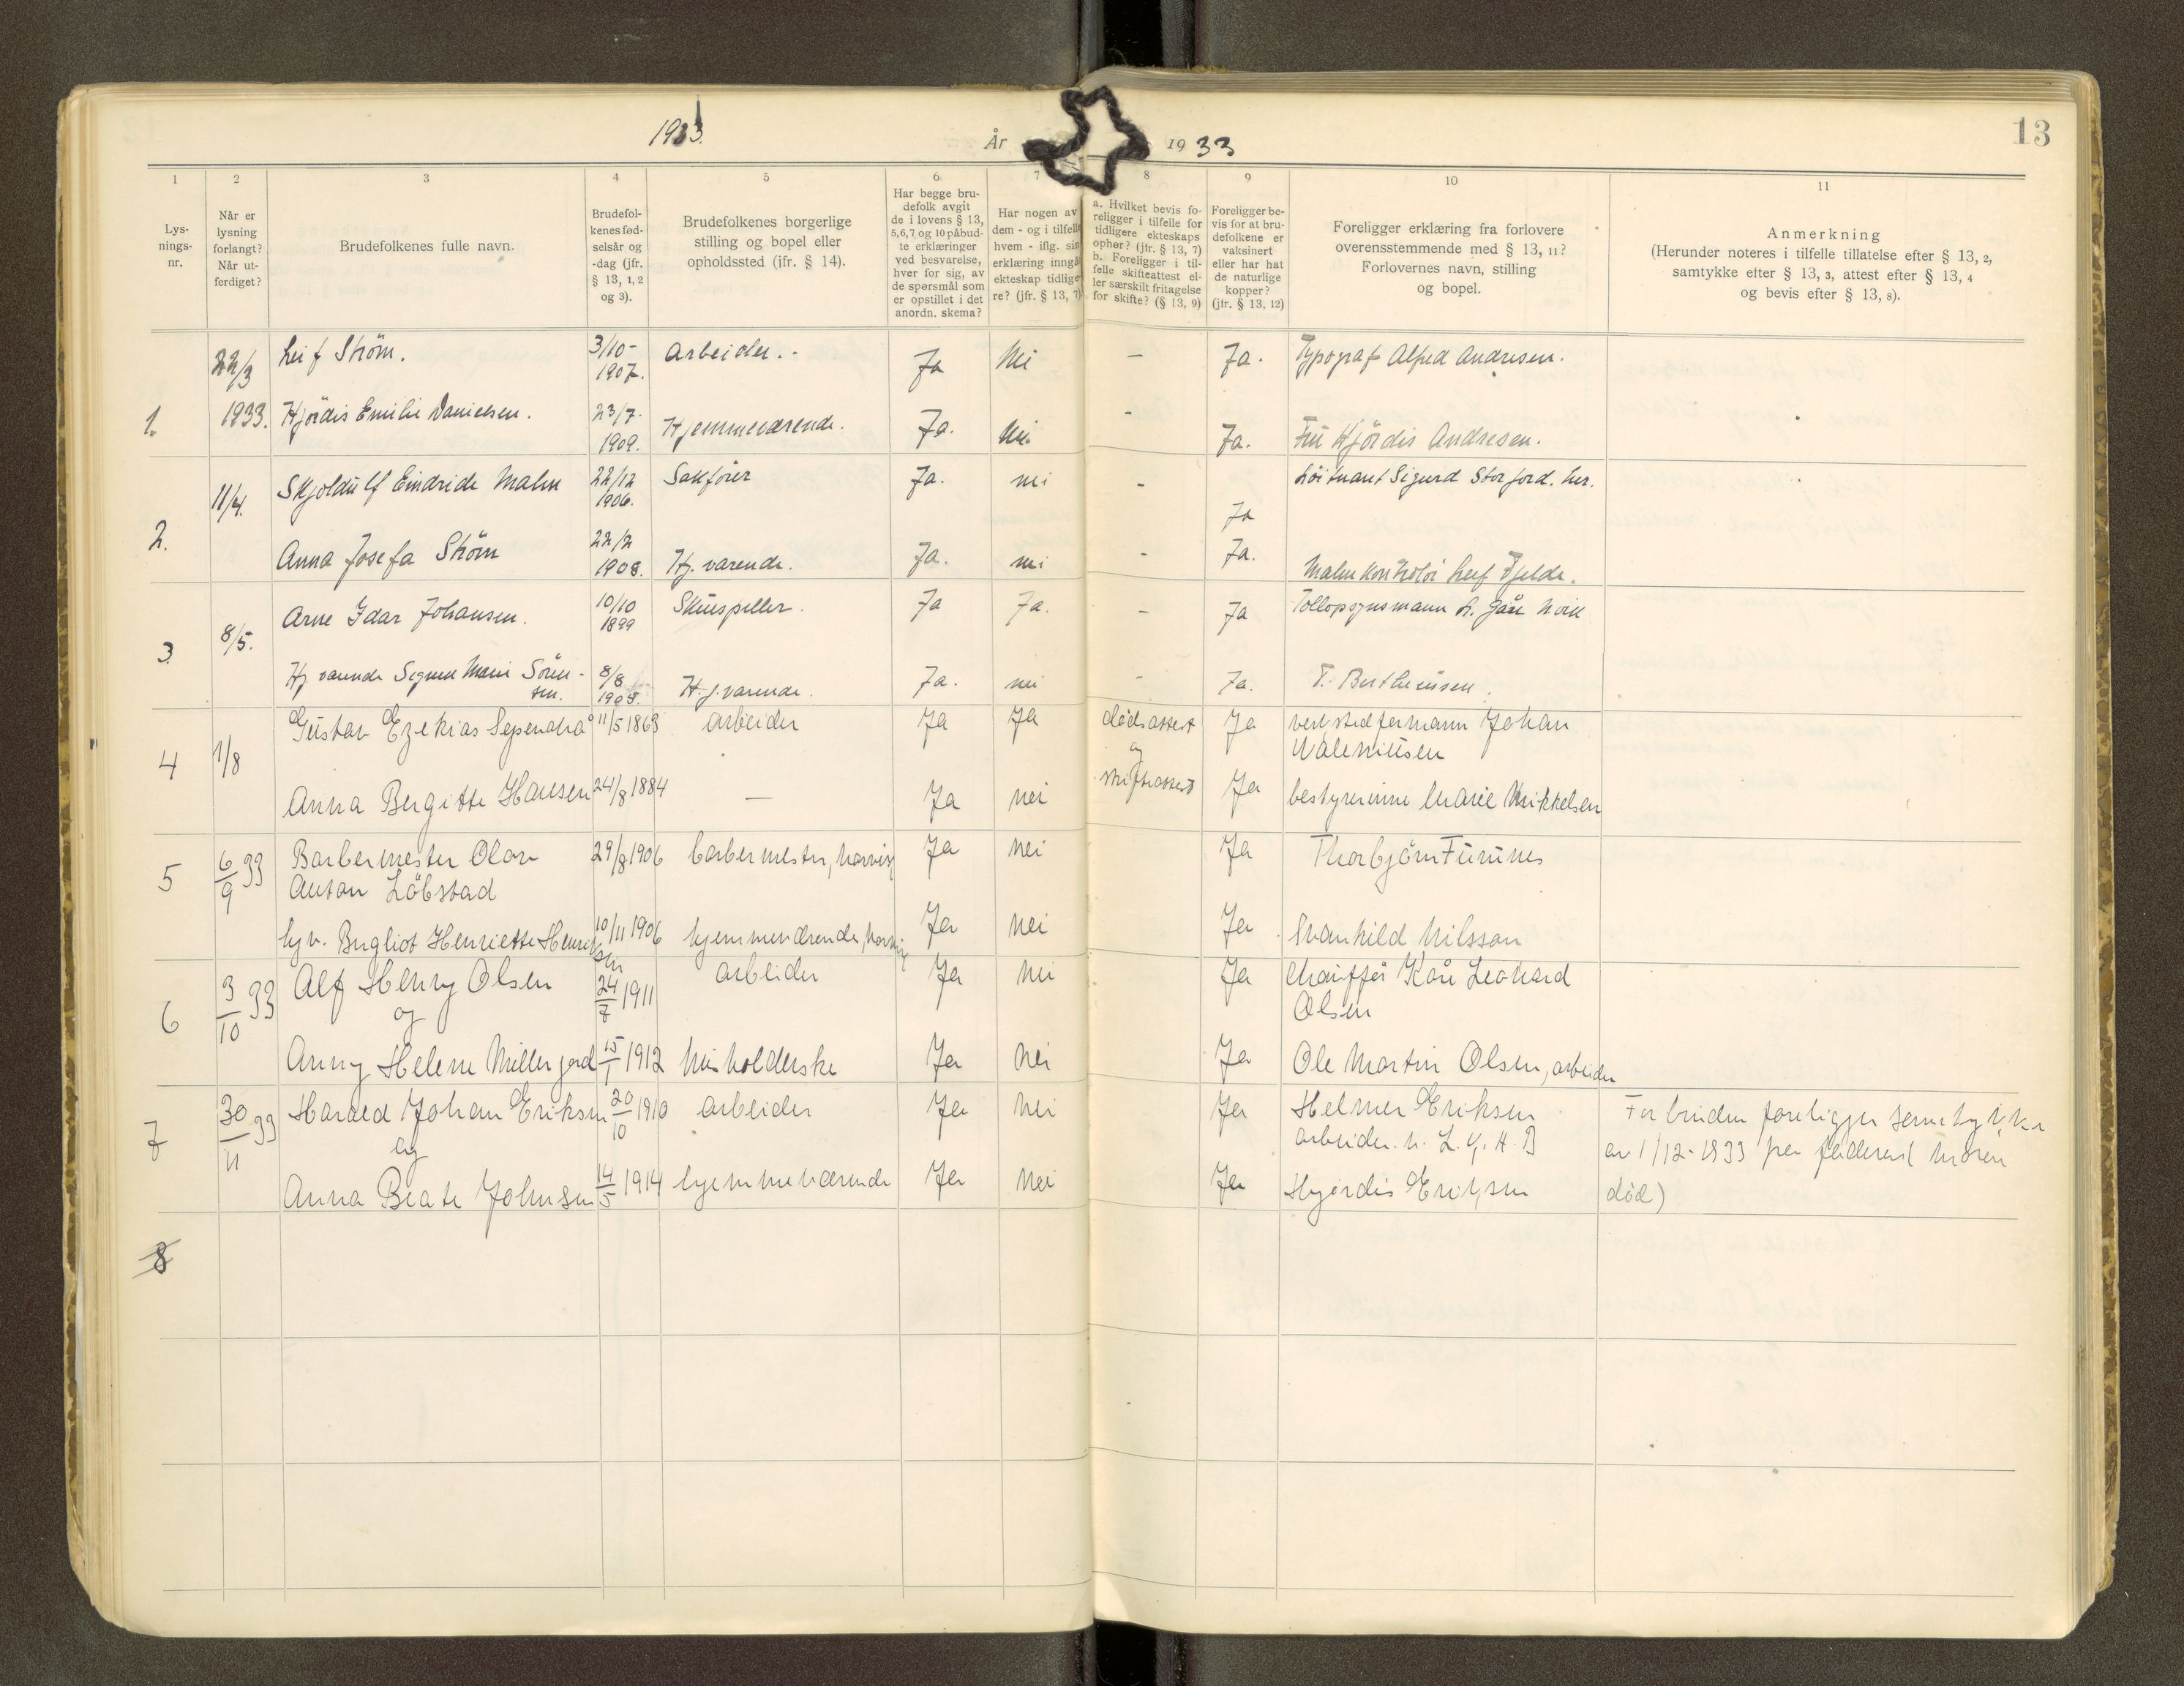 1933.
År
1933
13
1
2
3
4
5
6
7
8
9
10
11
Lys-
nings-
nr.
Når er
lysning
forlangt?
Når ut-
ferdiget?
Brudefolkenes fulle navn.
Brudefol-
kenes fød-
selsår og
-dag (jfr.
§ 13, 1, 2
og 3).
Brudefolkenes borgerlige
stilling og bopel eller
opholdssted (jfr. § 14).
Har begge bru-
defolk avgit
de i lovens § 13,
5,6,7 og 10 påbud-
te erklæringer
ved besvarelse,
hver for sig, av
de spørsmål som
er opstillet i det
anordn. skema?
Har nogen av
dem - og i tilfelle
hvem - iflg. sin
erklæring inngå
ekteskap tidlige
re? (jfr. § 13, 7)
a. Hvilket bevis fo-
religger i tilfelle for
tidligere ekteskaps
ophør? (jfr. § 13, 7)
b. Foreligger i til-
felle skifteattest el-
ler særskilt fritagelse
for skifte? (§ 13, 9)
Foreligger be-
vis for at bru-
defolkene er
vaksinert
eller har hat
de naturlige
kopper?
(jfr. § 13, 12)
Foreligger erklæring fra forlovere
overensstemmende med § 13, 11?
Forlovernes navn, stilling
og bopel.
Anmerkning
(Herunder noteres i tilfelle tillatelse efter § 13, 2,
samtykke efter § 13, 3, attest efter § 13, 4
og bevis efter § 13, 8).
1. 22/3 Leif Ström. 3/10- Arbeider. - Ja Nei - Ja. Typograf Alfred Andresen.
1907.
1933. Hjördis Emilie Danielsen. 23/7- Hjemmeværende. Ja. Nei - Ja. Fru Hjördis Andresen.
1909.
2. 11/4. Skjoldulf Eindride Malm 22/12 Sakförer Ja. nei - Ja Löitnant Sigurd Storjord. her.
1906.
Anna Josefa Ström 22/2 Hj. værende. Ja. nei - Ja. Malmkontrolör Leif Fjelde.
1908.
3. 8/5. Arne Idar Johansen. 10/10 Skuespiller. Ja Ja. - Ja Tollopsynsmann
1899
Hj værende Signe Marie Sören- 8/8 Hj. værende. Ja. nei - Ja. T. Bertheusen.
sen. 1908.
4 1/8 Gustav Ezekias Sependra 11/5 1863 arbeider Ja Ja dödsattest Ja verkstedformann Johan
og Waleniusen
Anna Bergitte Hansen 24/8 1884 — Ja nei skifteattest Ja bestyrerinne Marie Mikkelsen
5 6/9 33 Barbermester Olav 29/8 1906 barbermester, Narvik Ja nei Ja Thorbjörn Furunes
Anton Löbstad
hjv. Bergliot Henriette Henrik 10/11 1906 hjemmeværende, Narvik Ja nei Ja Svanhild Nilsson
sen
6 3/10 33 Alf Henry Olsen 24/7 1911 arbeider Ja nei Ja Chaufför Kåre Leonard
og Olsen
Anny Helene Millerjord 15/1 1912 husholderske Ja nei Ja Ole Martin Olsen, arbeider
7 30/11 33 Harald Johan Eriksen 20/10 1910 arbeider Ja nei Ja Helmer Eriksen For bruden foreligger samtykke
og arbeider. av 1/12-1933 fra faderen (moren
Anna Beate Johnsen 14/5 1914 hjemmeværende Ja nei Ja Hjördis Eriksen död)
8